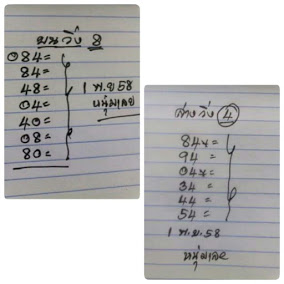 บนวิ่ง 8
084=
84=
48=
04=
40=
08=
80=
1 พ.ย 58
หนุ่มเลย
ล่างวิ่ง 4
84=
94=
04=
34=
44=
54=
1 พ.ย. 58
หนุ่มเลย